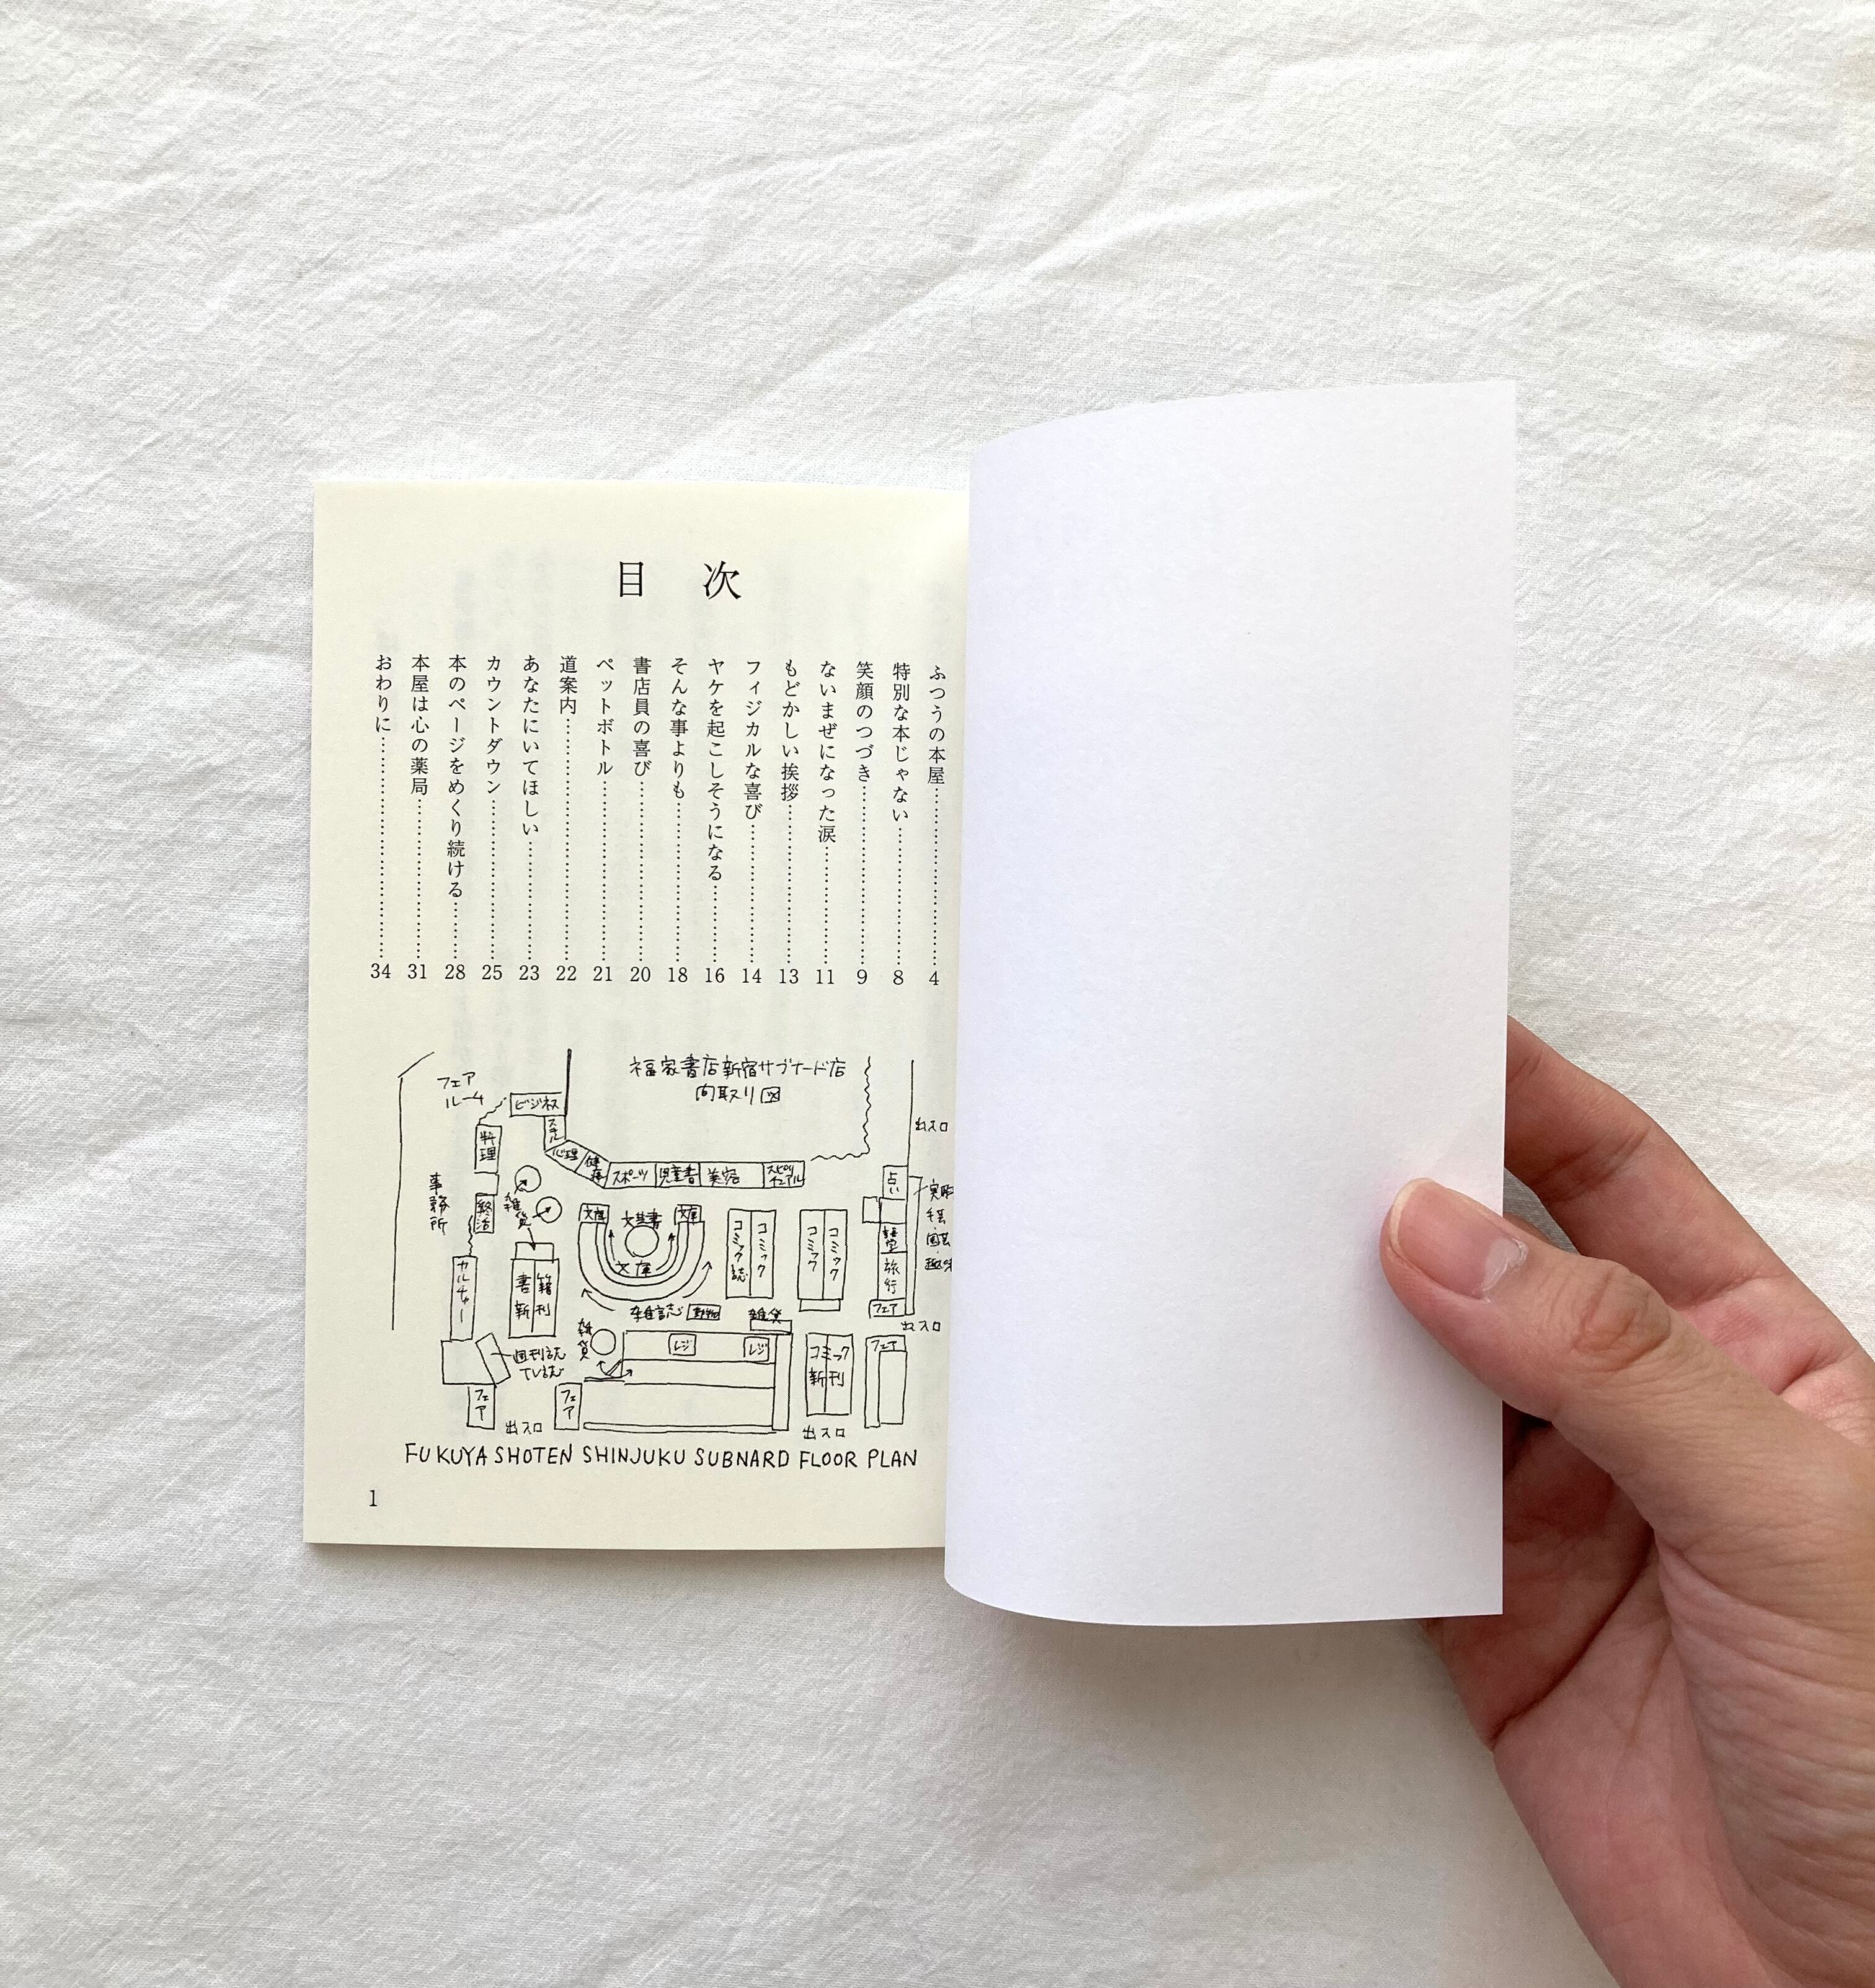 目次
ふつうの本屋……4
特別な本じゃない……8
笑顔のつづき……9
ないまぜになった涙……11
もどかしい挨拶……13
フィジカルな喜び……14
ヤケを起こしそうになる……16
そんな事よりも……18
書店員の喜び……20
ペットボトル……21
道案内……22
あなたにいてほしい……23
カウントダウン……25
本のページをめくり続ける……28
本屋は心の薬局……31
おわりに……34
福家書店新宿サブナード店
間取り図
フェア
ルーム
ビジネス
料理
心理
スポーツ
児童書
美容
スピリチュアル
出入口
占い
事務所
雑貨
文庫
文芸書
文庫
文庫
コミック誌
コミック
コミック
コミック
旅行
フェア
出入口
カルチャー
書籍
新刊
雑誌
雑貨
雑貨
レジ
レジ
コミック
新刊
フェア
週刊誌
TV誌
フェア
フェア
出入口
出入口
FUKUYA SHOTEN SHINJUKU SUBNARD FLOOR PLAN
1